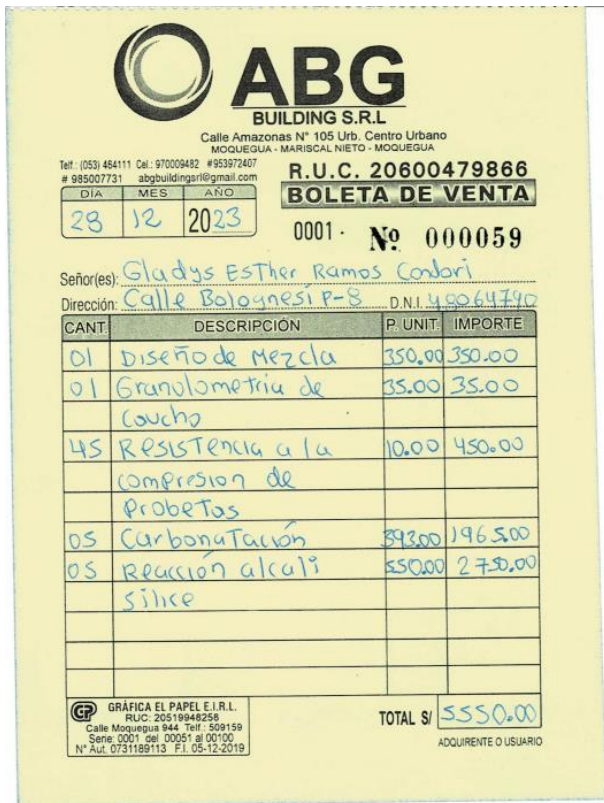 ABG
BUILDING S.R.L
Calle Amazonas N° 105 Urb. Centro Urbano
MOQUEGUA - MARISCAL NIETO - MOQUEGUA
Telf.: (053) 464111 Cel.: 970009482 #953972407
# 985007731 abgbuildingsrl@gmail.com
R.U.C. 20600479866
BOLETA DE VENTA
DÍA MES AÑO
28 12 2023
0001 - Nº 000059
Señor(es): Gladys Esther Ramos Condori
Dirección: Calle Bolognesi P-8 D.N.I. 48064790
CANT. DESCRIPCIÓN P. UNIT. IMPORTE
01 Diseño de Mezcla 350.00 350.00
01 Granulometria de 35.00 35.00
caucho
45 Resistencia a la 10.00 450.00
compresion de
Probetas
05 Carbonatación 393.00 1965.00
05 Reacción alcali 550.00 2750.00
silice
GP GRÁFICA EL PAPEL E.I.R.L.
RUC: 20519948258
Calle Moquegua 944 Telf.: 509159
Serie: 0001 del 00051 al 00100
N° Aut. 0731189113 F.I. 05-12-2019
TOTAL S/ 5550.00
ADQUIRENTE O USUARIO